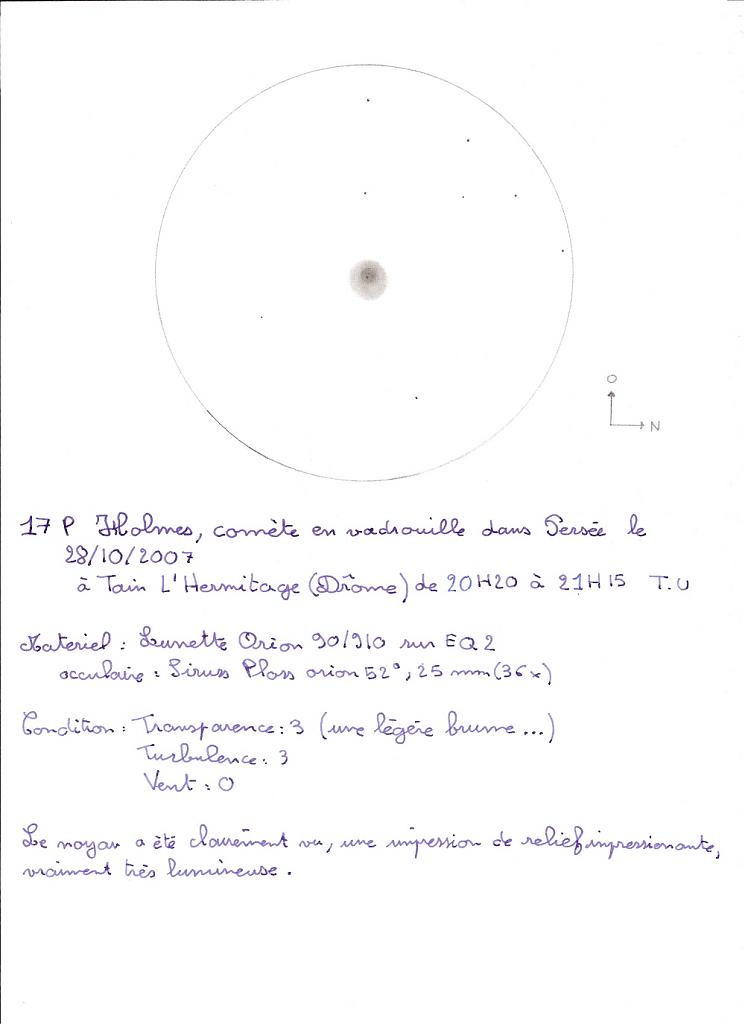 O
N
17 P Holmes, comète en vadrouille dans Persée le
28/10/2007
à Tain L'Hermitage (Drôme) de 20H20 à 21H15 T.U
Materiel : Lunette Orion 90/910 sur EQ2
occulaire : Siruss Ploss orion 52°, 25 mm (36x)
Condition : Transparence : 3 (une légère brume...)
Turbulence : 3
Vent : 0
Le noyau a été clairement vu, une impression de relief impressionante,
vraiment très lumineuse.